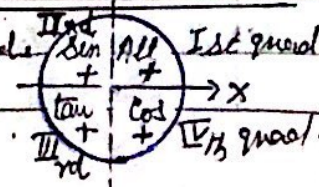 IInd
Sin All Ist quad
+ +
X
tan Cos
+ +
IIIrd IVth quad.